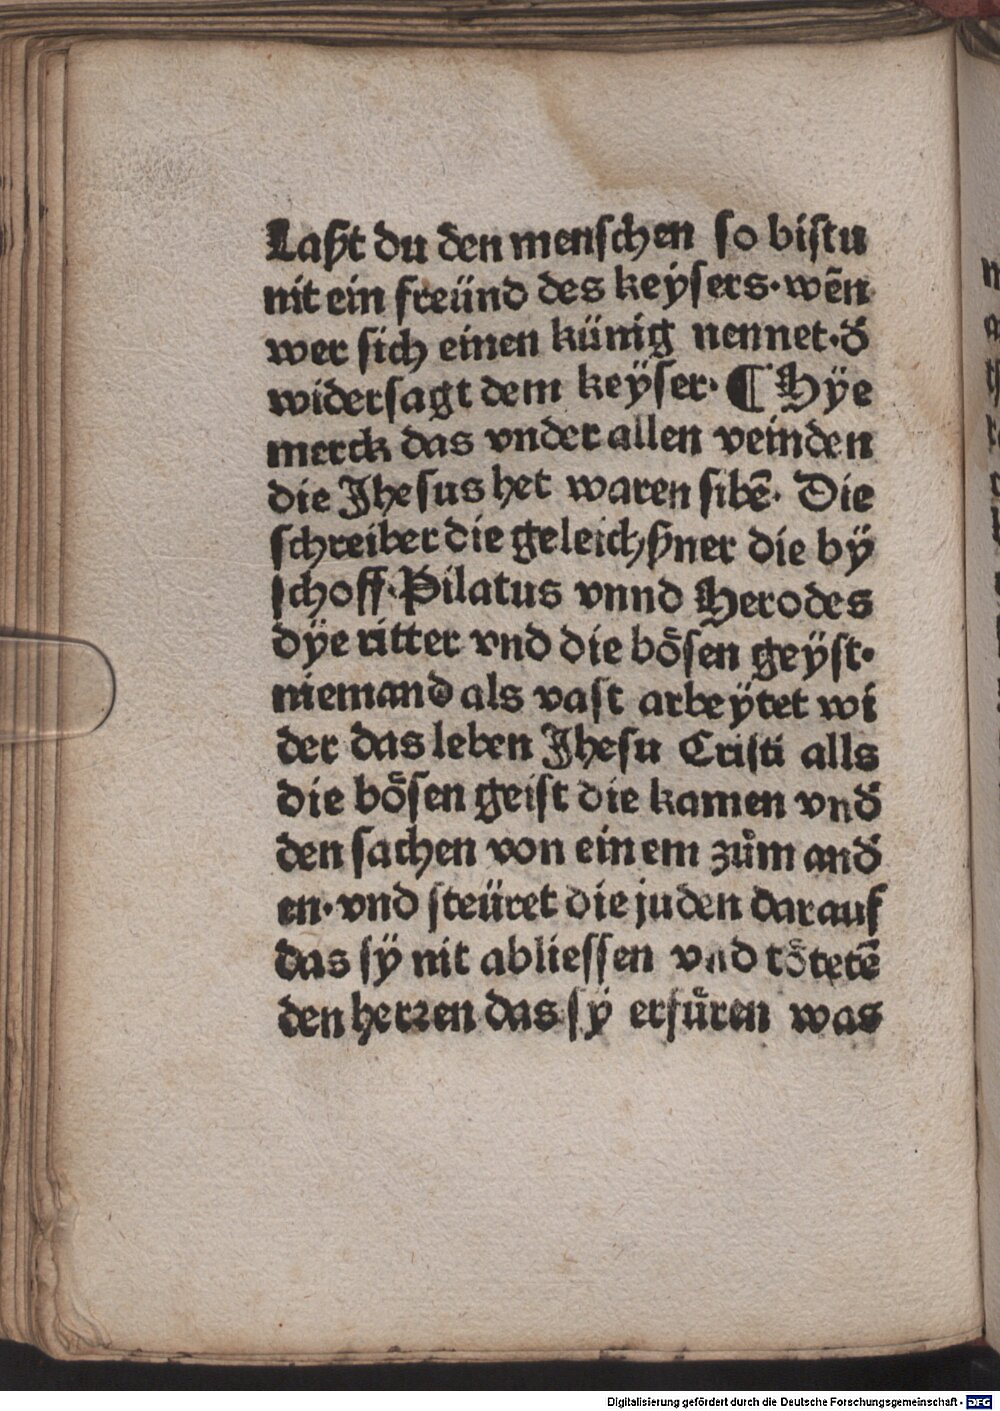 Laßt du den menschen so bistu
nit ein freünd des keysers·wēn
wer sich einen künig nennet·d̄
widersagt dem keÿser·¶ Hÿe
merck das vnder allen veinden
die Jhesus het waren sibē· Die
schreiber die geleichßner die bÿ
schoff·Pilatus vnnd Herodes
dÿe ritter vnd die boͤsen geÿst·
niemand als vast arbeÿtet wi
der das leben Jhesu Cristi alls
die boͤsen geist die kamen vnd̄
den sachen von einem zuͦm and̄
en·vnd steüret die juden darauf
das sÿ nit abliessen vnd toͤtetē
den herꝛen das sÿ erfuͤren was
Digitalisierung gefördert durch die Deutsche Forschungsgemeinschaft - DFG